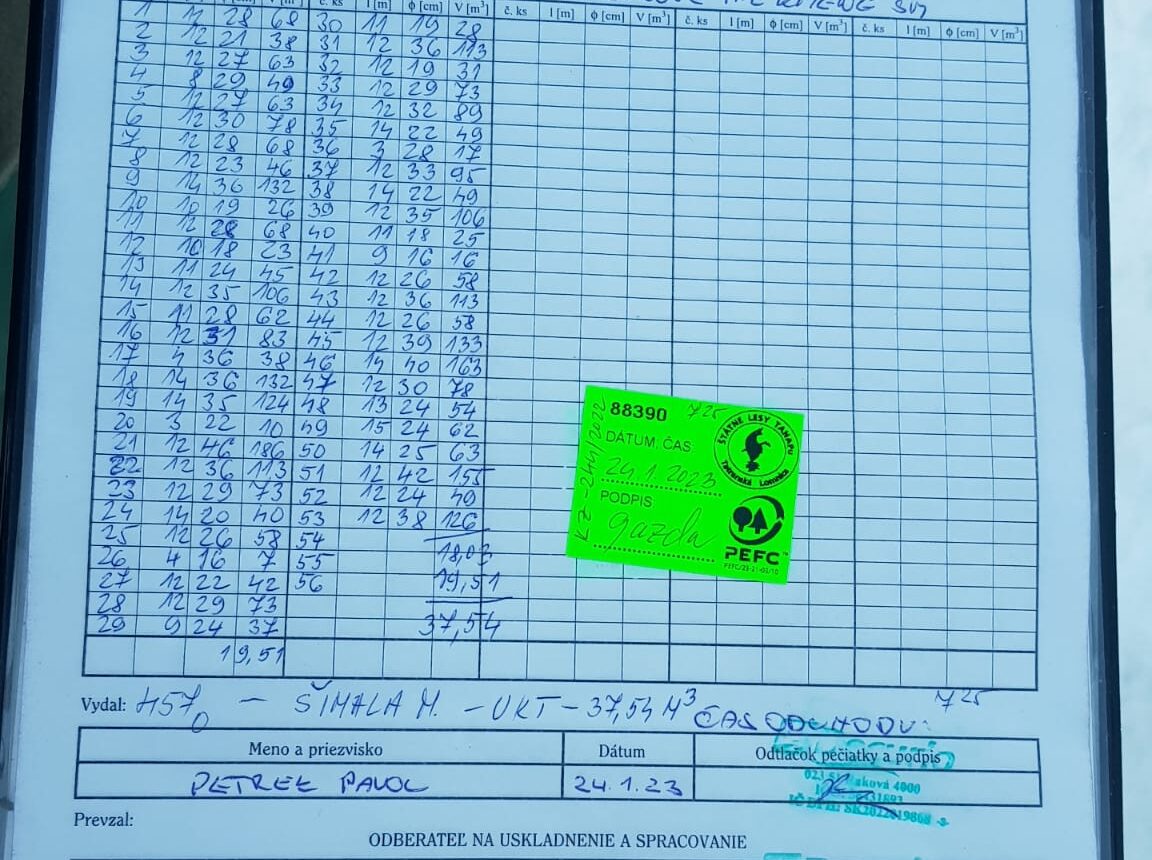 č. ks l [m] ϕ [cm] V [m³] č. ks l [m] ϕ [cm] V [m³] č. ks l [m] ϕ [cm] V [m³]
1 12 28 68 30 11 19 28
2 12 21 38 31 12 36 113
3 12 27 63 32 12 19 31
4 8 29 49 33 12 29 73
5 12 27 63 34 12 32 89
6 12 30 78 35 14 22 49
7 12 28 68 36 3 28 17
8 12 23 46 37 12 33 95
9 14 36 132 38 14 22 49
10 10 19 26 39 12 35 106
11 12 28 68 40 11 18 25
12 10 18 23 41 9 16 16
13 11 24 45 42 12 26 58
14 12 35 106 43 12 36 113
15 11 28 62 44 12 26 58
16 12 31 83 45 12 39 133
17 4 36 38 46 14 40 163
18 14 36 132 47 12 30 78
19 14 35 124 48 13 24 54
20 3 22 10 49 15 24 62
21 12 46 186 50 14 25 63
22 12 36 113 51 12 42 155
23 12 29 73 52 12 24 49
24 14 20 40 53 12 38 126
25 12 26 58 54
26 4 16 7 55 18,03
27 12 22 42 56 19,51
28 12 29 73
29 9 24 37 37,54
19,51
88390 725
DÁTUM, ČAS
24.1.2023
PODPIS
gazda
ŠTÁTNE LESY TANAPU
Tatranská Lomnica
PEFC
Vydal: 457 - ŠIMALA M. - UKT - 37,54 M³ ČAS ODCHODU: 725
Meno a priezvisko Dátum Odtlačok pečiatky a podpis
PETREK PAVOL 24.1.23
Prevzal:
ODBERATEĽ NA USKLADNENIE A SPRACOVANIE